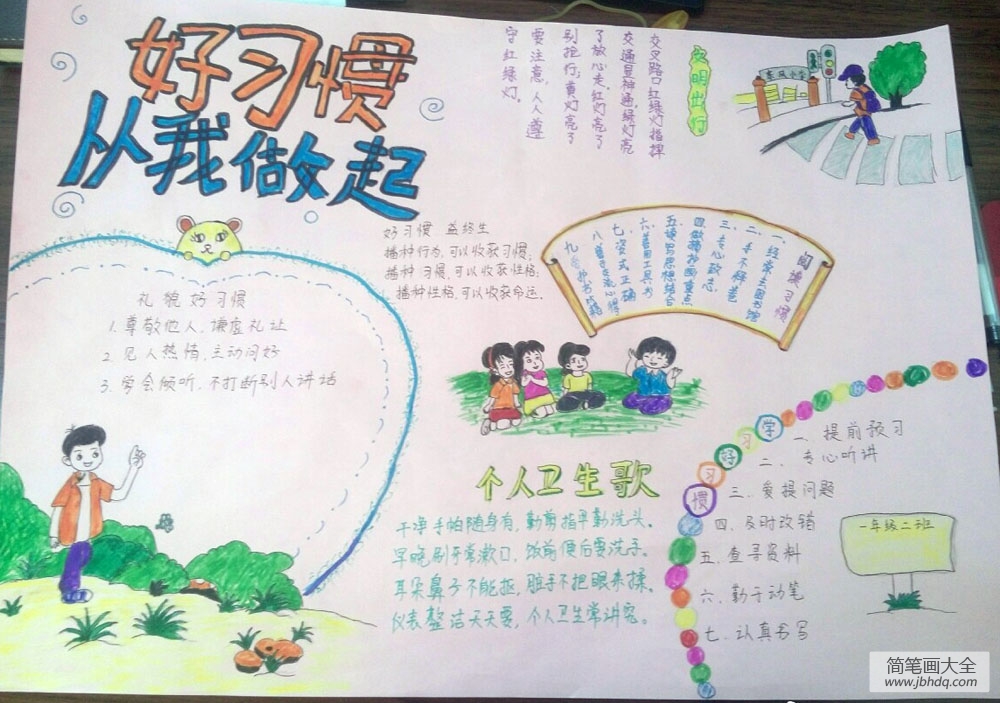 好习惯
从我做起
文明出行
交叉路口红绿灯指挥
交通显神通绿灯亮
了放心走红灯亮了
别抢行;黄灯亮了
要注意,人人遵
守红绿灯。
东风小学
好习惯 益终生
播种行为,可以收获习惯;
播种习惯,可以收获性格;
播种性格,可以收获命运.
阅读习惯
一、经常去图书馆
二、手不释卷
三、专心致志
四做摘抄画重点
五读写思想结合
六善用工具书
七、姿式正确
八
九
礼貌好习惯
1.尊敬他人,谦虚礼让
2.见人热情,主动问好
3.学会倾听,不打断别人讲话
学习好习惯
一、提前预习
二、专心听讲
三、爱提问题
四、及时改错
五、查寻资料
六、勤于动笔
七、认真书写
一年级二班
个人卫生歌
干净手帕随身有,勤剪指甲勤洗头。
早晚刷牙常漱口,饭前便后要洗手。
耳朵鼻子不能抠,脏手不把眼来揉。
仪表整洁天天要,个人卫生常讲究。
简笔画大全
www.jbhdq.com